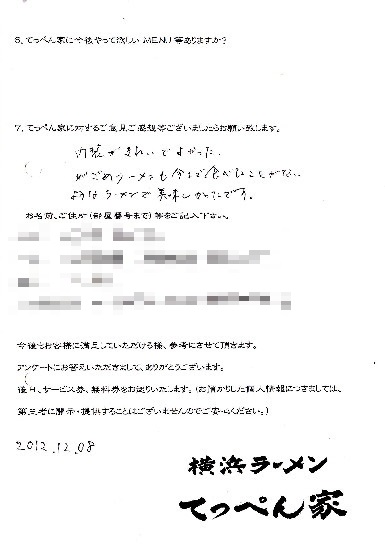 6. てっぺん家に今後やって欲しいMENU等ありますか?
7. てっぺん家に対するご意見ご感想等ございましたらお願い致します。
内装がきれいでよかった。
ラーメンも今まで食べたことがない
ようなラーメンで美味しかったです。
お名前、ご住所(部屋番号まで)等をご記入下さい。
今後もお客様に満足していただける様、参考にさせて頂きます。
アンケートにお答えいただきまして、ありがとうございます。
後日、サービス券、無料券をお送りいたします。(お預かりした個人情報につきましては、
第三者に開示・提供することはございませんのでご安心ください。)
2012.12.08
横浜ラーメン
てっぺん家